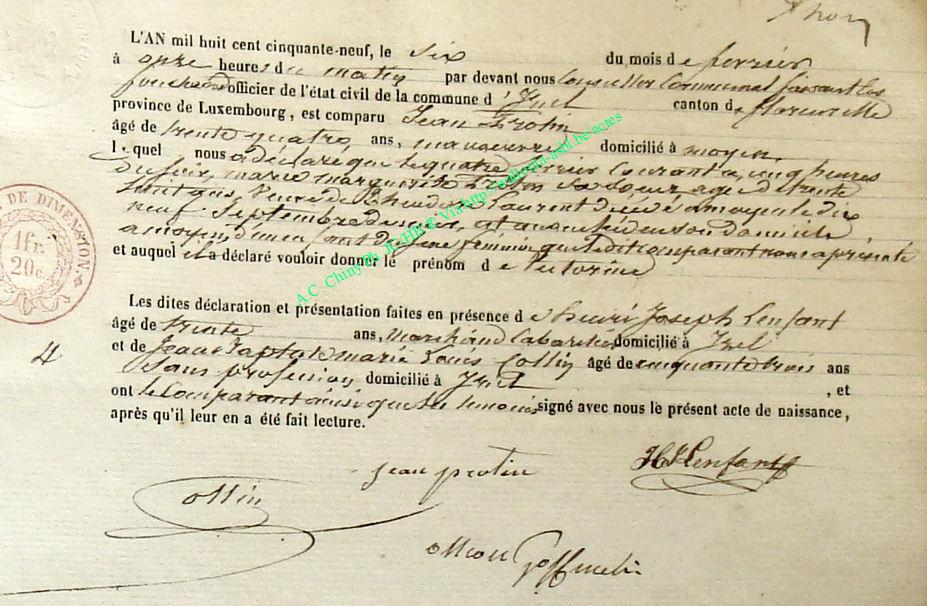 L'AN mil huit cent cinquante-neuf, le six du mois de février
à onze heures du matin par devant nous Conseiller Communal faisant les
fonctions d'officier de l'état civil de la commune d'Izel canton de florenville
province de Luxembourg, est comparu Jean Protin
âgé de trente quatre ans, manoeuvre domicilié à moyen,
lequel nous a déclaré que le quatre février courant à cinq heures
du soir, marie marguerite Protin sa soeur agée de trente
huit ans, Veuve de Laurent décédé à moyen le dix
neuf Septembre dernier, est accouchée en son domicile
à moyen, d'un enfant du sexe féminin que ledit comparant nous a présenté
et auquel il a déclaré vouloir donner le prénom de Victorine
Les dites déclaration et présentation faites en présence de henri Joseph Lenfant
âgé de trente ans, marchand Cabaretier domicilié à Izel
et de Jean Baptiste marie Louis Collin âgé de cinquante trois ans
Sans profession, domicilié à Izel, et
ont le Comparant ainsi que les temoins signé avec nous le présent acte de naissance,
après qu'il leur en a été fait lecture.
DE DIMENSION
1 fr.
20 c.
4
A.C. Chiny
actes
jean protin
HJ Lenfant
Collin